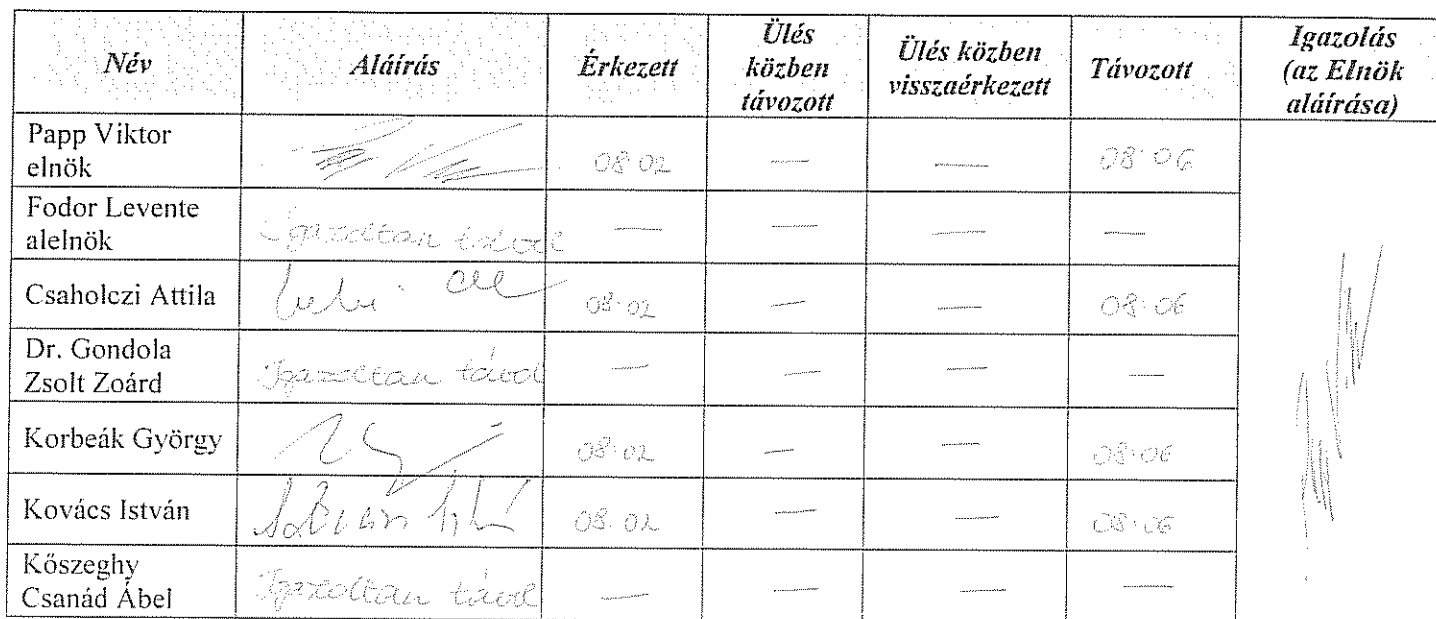 Név Aláírás Érkezett Ülés közben távozott Ülés közben visszaérkezett Távozott Igazolás (az Elnök aláírása)
Papp Viktor elnök 08:02 — — 08:06
Fodor Levente alelnök Igazoltan távol — — — —
Csaholczi Attila 08:02 — — 08:06
Dr. Gondola Zsolt Zoárd Igazoltan távol — — — —
Korbeák György 08:02 — — 08:06
Kovács István 08:02 — — 08:06
Kőszeghy Csanád Ábel Igazoltan távol — — — —